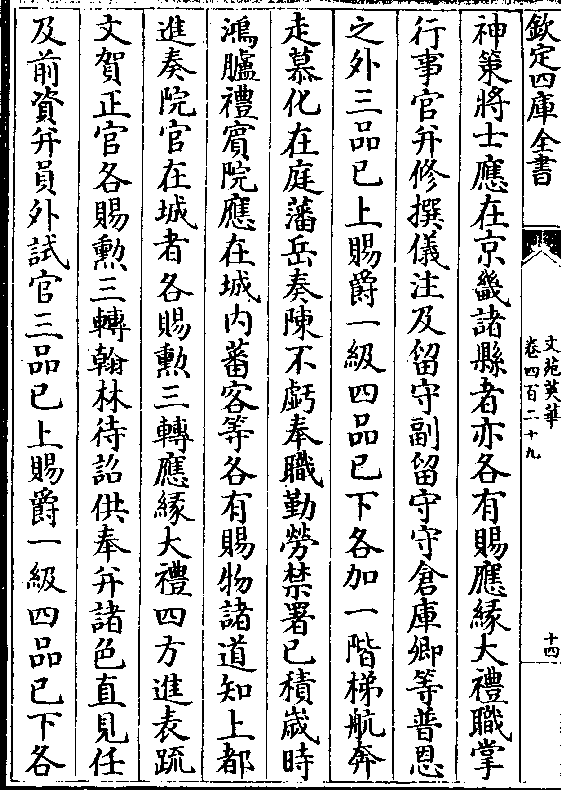 欽定四庫全書
文苑英華
卷四百二十九
十四
神策將士應在京畿諸縣者亦各有賜應緣大禮職掌
行事官并修撰儀注及留守副留守守倉庫卿等普恩
之外三品已上賜爵一級四品已下各加一階梯航奔
走慕化在庭藩岳奏陳不虧奉職勤勞禁署已積歲時
鴻臚禮賓院應在城内蕃客等各有賜物諸道知上都
進奏院官在城者各賜勲三轉應緣大禮四方進表疏
文賀正官各賜勲三轉翰林待詔供奉并諸色直見任
及前資并員外試官三品已上賜爵一級四品已下各